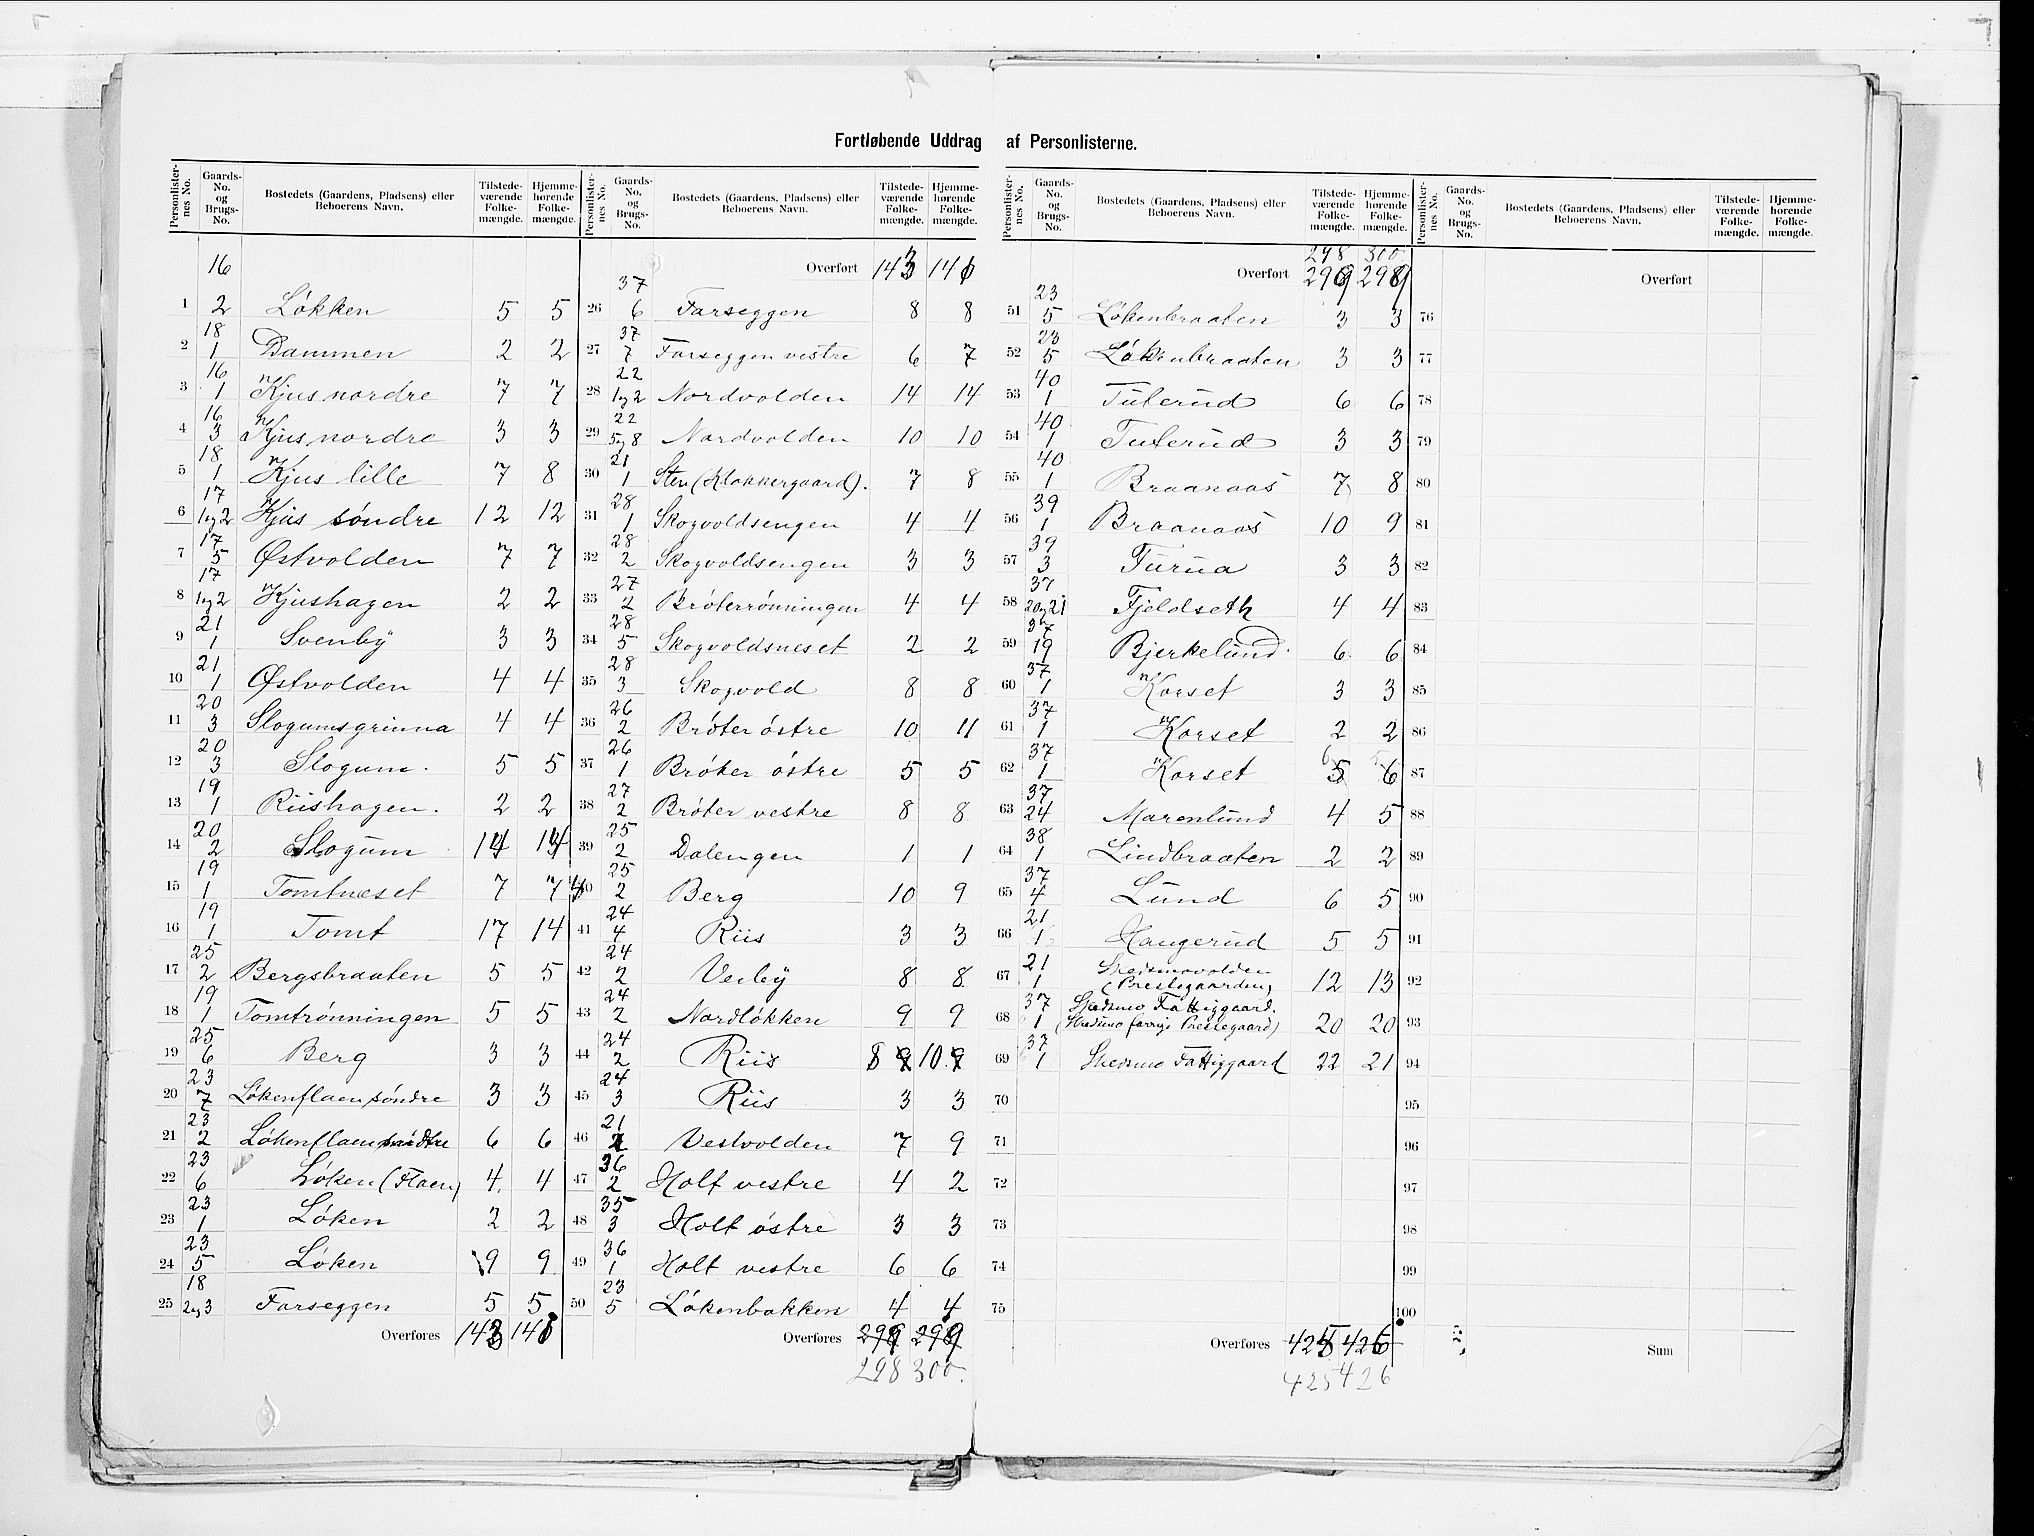 Fortløbende Uddrag af Personlisterne.
Personlister-nes No. | Gaards-No. og Brugs-No. | Bostedets (Gaardens, Pladsens) eller Beboerens Navn. | Tilstede-værende Folke-mængde. | Hjemme-hørende Folke-mængde.
1 | 16 2 | Løkken | 5 | 5
2 | 18 1 | Dammen | 2 | 2
3 | 16 1 | Kjus nordre | 7 | 7
4 | 16 3 | Kjus nordre | 3 | 3
5 | 18 1 | Kjus lille | 7 | 8
6 | 17 1 og 2 | Kjus søndre | 12 | 12
7 | 17 5 | Østvolden | 7 | 7
8 | 17 1 og 2 | Kjushagen | 2 | 2
9 | 21 1 | Svenby | 3 | 3
10 | 21 1 | Østvolden | 4 | 4
11 | 20 3 | Slogumsgrinna | 4 | 4
12 | 20 3 | Slogum. | 5 | 5
13 | 19 1 | Riishagen. | 2 | 2
14 | 20 2 | Slogum | 14 | 14
15 | 19 1 | Tomtneset | 7 | 7
16 | 19 1 | Tomt | 17 | 14
17 | 25 2 | Bergsbraaten | 5 | 5
18 | 19 1 | Tomtrønningen | 5 | 5
19 | 25 6 | Berg | 3 | 3
20 | 23 7 | Løkenflaen søndre | 3 | 3
21 | 23 2 | Løkenflaen | 6 | 6
22 | 23 6 | Løken (Flaen) | 4 | 4
23 | 23 1 | Løken | 2 | 2
24 | 23 5 | Løken | 9 | 9
25 | 18 2 og 3 | Farseggen | 5 | 5
Overføres 143 141
Personlister-nes No. | Gaards-No. og Brugs-No. | Bostedets (Gaardens, Pladsens) eller Beboerens Navn. | Tilstede-værende Folke-mængde. | Hjemme-hørende Folke-mængde.
Overført 143 141
26 | 37 6 | Farseggen | 8 | 8
27 | 37 7 | Farseggen vestre | 6 | 7
28 | 22 1 og 2 | Nordvolden | 14 | 14
29 | 22 5 og 8 | Nordvolden | 10 | 10
30 | 21 1 | Sten (Klokkergaard). | 7 | 8
31 | 28 1 | Skogvoldsengen | 4 | 4
32 | 28 2 | Skogvoldsengen | 3 | 3
33 | 27 2 | Brøterrønningen | 4 | 4
34 | 28 5 | Skogvoldsneset | 2 | 2
35 | 28 3 | Skogvold | 8 | 8
36 | 26 2 | Brøter østre | 10 | 11
37 | 26 1 | Brøter østre | 5 | 5
38 | 27 2 | Brøter vestre | 8 | 8
39 | 25 2 | Dalengen | 1 | 1
40 | 25 2 | Berg | 10 | 9
41 | 24 4 | Riis | 3 | 3
42 | 24 2 | Veiby | 8 | 8
43 | 24 2 | Nordløkken | 9 | 9
44 | 24 2 | Riis | 8 9 | 10 9
45 | 24 3 | Riis | 3 | 3
46 | 21 2 | Vestvolden | 7 | 9
47 | 36 2 | Holt vestre | 4 | 2
48 | 35 3 | Holt østre | 3 | 3
49 | 36 1 | Holt vestre | 6 | 6
50 | 23 5 | Løkenbakken | 4 | 4
Overføres 299 299
298 300.
Personlister-nes No. | Gaards-No. og Brugs-No. | Bostedets (Gaardens, Pladsens) eller Beboerens Navn. | Tilstede-værende Folke-mængde. | Hjemme-hørende Folke-mængde.
298 300
Overført 299 299
51 | 23 5 | Løkenbraaten | 3 | 3
52 | 23 5 | Løkenbraaten | 3 | 3
53 | 40 1 | Tuterud | 6 | 6
54 | 40 1 | Tuterud | 3 | 3
55 | 40 1 | Braanaas | 7 | 8
56 | 39 1 | Braanaas | 10 | 9
57 | 39 3 | Furua | 3 | 3
58 | 37 20 og 21 | Fjeldseth | 4 | 4
59 | 37 19 | Bjerkelund. | 6 | 6
60 | 37 1 | Korset | 3 | 3
61 | 37 1 | Korset | 2 | 2
62 | 37 1 | Korset | 6 5 | 6
63 | 37 24 | Marenlund | 4 | 5
64 | 38 1 | Lindbraaten | 2 | 2
65 | 37 4 | Lund | 6 | 5
66 | 21 1 | Haugerud | 5 | 5
67 | 21 1 | Skedsmovolden (Prestegaarden) | 12 | 13
68 | 37 1 | Skedsmo Fattiggaard. (Skedsmo forrige Prestegaard) | 20 | 20
69 | 37 1 | Skedsmo Fattiggaard | 22 | 21
70
71
72
73
74
75
Overføres 425 426
425 426
Personlister-nes No. | Gaards-No. og Brugs-No. | Bostedets (Gaardens, Pladsens) eller Beboerens Navn. | Tilstede-værende Folke-mængde. | Hjemme-hørende Folke-mængde.
Overført
76
77
78
79
80
81
82
83
84
85
86
87
88
89
90
91
92
93
94
95
96
97
98
99
100
Sum